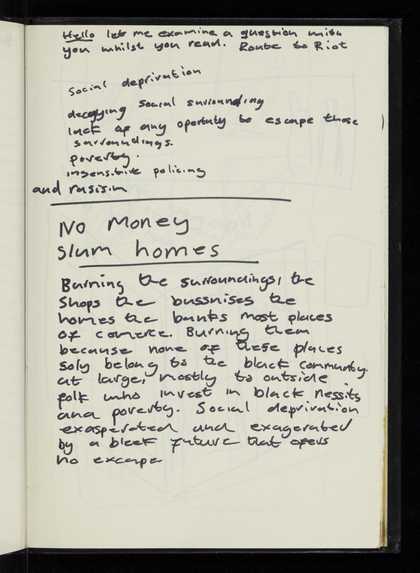 Hello let me examine a question with
you whilst you read. Route to Riot
Social deprivation
decaying social surrounding
lack of any oportuty to escape those
surroundings.
poverty.
insensitive policing
and rasism
No Money
slum homes
Burning the surroundings, the
shops the bussnises the
homes the banks most places
of comerce. Burning them
because none of these places
soly belong to the black community
at large, mostly to outside
folk who invest in black nessity
and poverty. Social deprivation
exasperated and exagerated
by a bleek future that offers
no excape